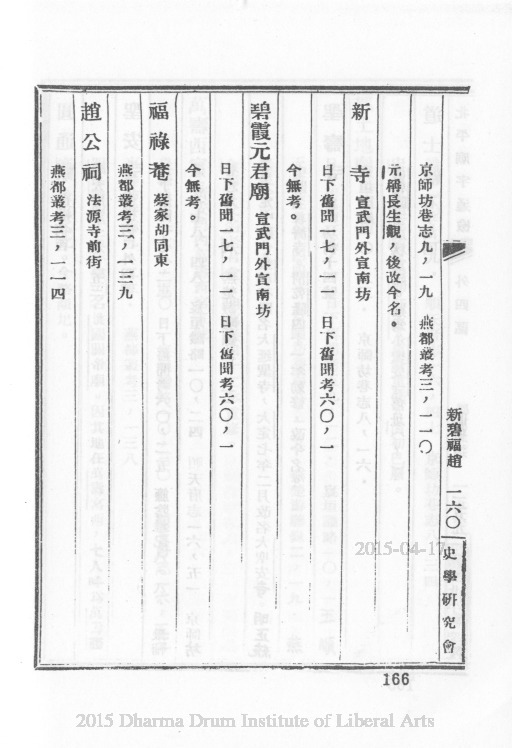 新碧福趙　一六〇
史學研究會
京師坊巷志九，一九　燕都叢考三，一一〇
元稱長生觀，後改今名。
新寺　宣武門外宣南坊
日下舊聞一七，一一　日下舊聞考六〇，一
今無考。
碧霞元君廟　宣武門外宣南坊
日下舊聞一七，一一　日下舊聞考六〇，一
今無考。
福祿菴　蔡家胡同東
燕都叢考三，一三九
趙公祠　法源寺前街
燕都叢考三，一一四
166
2015-04-17
2015 Dharma Drum Institute of Liberal Arts